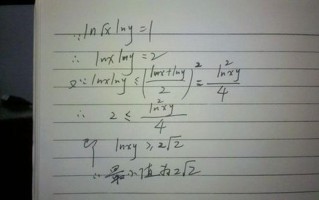 ∵ ln√x lny = 1
∴ lnx lny = 2
又∵ lnx lny ≤ (lnx+lny / 2)² = ln²xy / 4
∴ 2 ≤ ln²xy / 4
lnxy ≥ 2√2
∴ 最小值为2√2